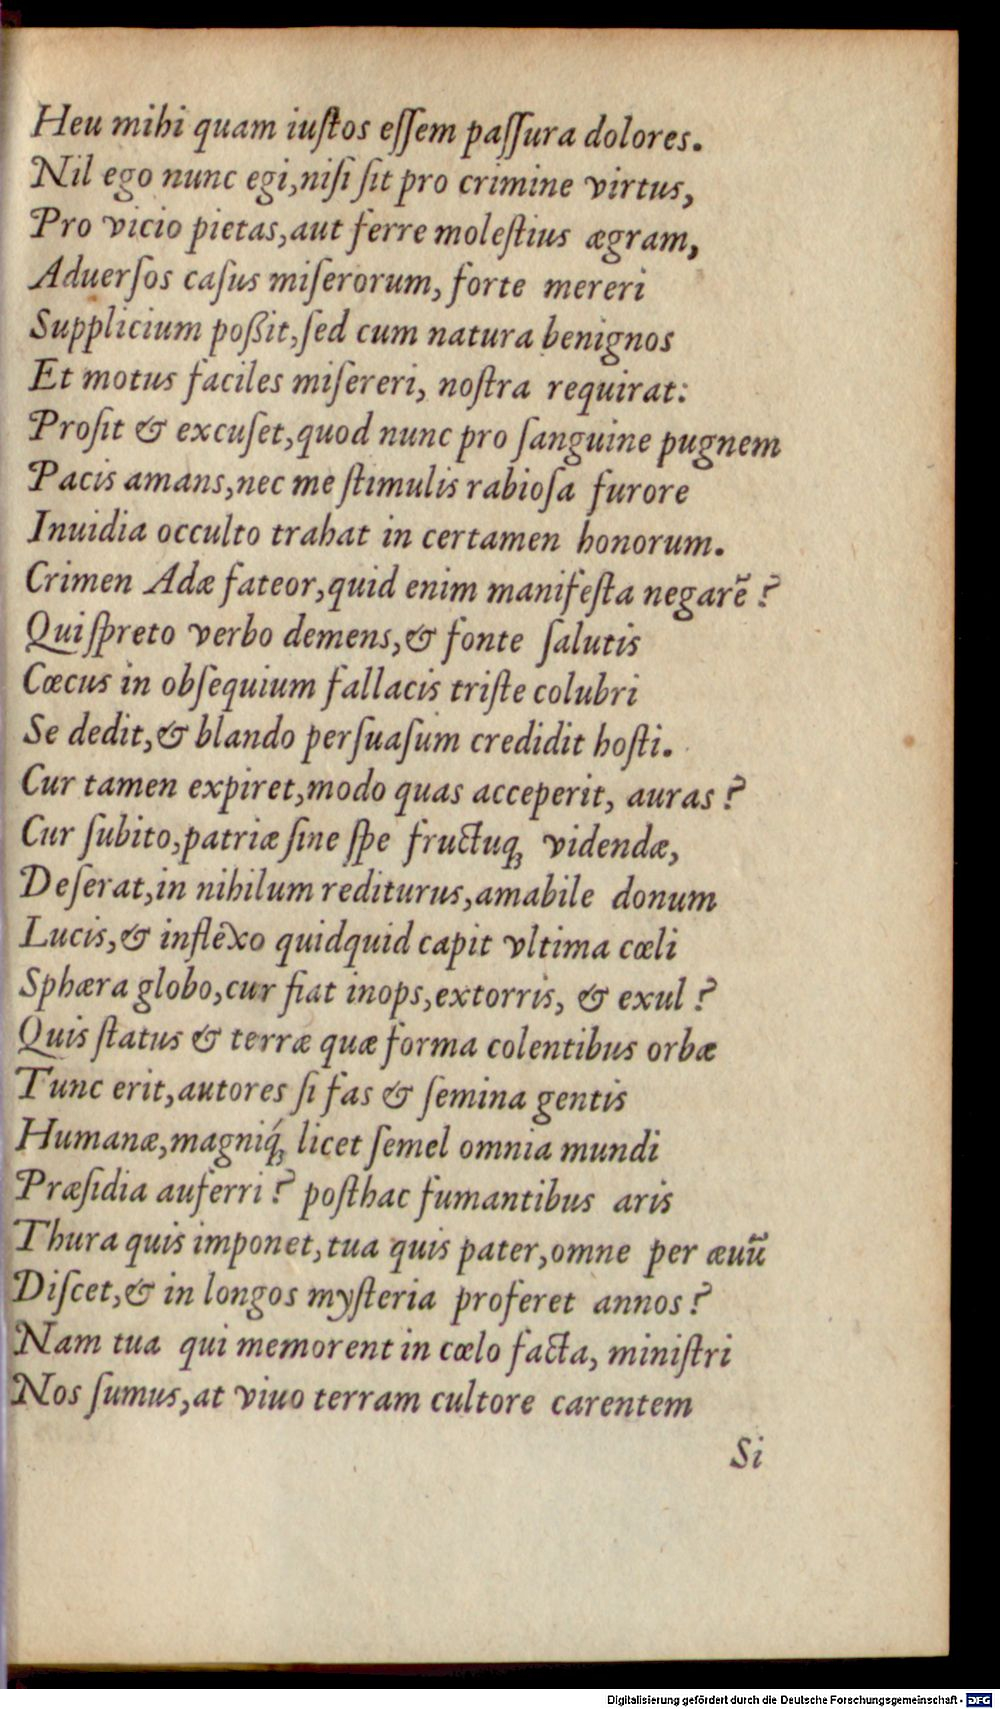 Heu mihi quam iuſtos eſſem paſſura dolores.
Nil ego nunc egi,niſi ſit pro crimine virtus,
Pro vicio pietas,aut ferre moleſtius ægram,
Aduerſos caſus miſerorum, forte mereri
Supplicium poßit,ſed cum natura benignos
Et motus faciles miſereri, noſtra requirat:
Proſit & excuſet,quod nunc pro ſanguine pugnem
Pacis amans,nec me ſtimulis rabioſa furore
Inuidia occulto trahat in certamen honorum.
Crimen Adæ fateor,quid enim manifeſta negarẽ ?
Qui ſpreto verbo demens,& fonte ſalutis
Cœcus in obſequium fallacis triſte colubri
Se dedit,& blando perſuaſum credidit hoſti.
Cur tamen expiret,modo quas acceperit, auras ?
Cur ſubito,patriæ ſine ſpe fructuqꝫ videndæ,
Deſerat,in nihilum rediturus,amabile donum
Lucis,& inflexo quidquid capit vltima cœli
Sphæra globo,cur fiat inops,extorris, & exul ?
Quis ſtatus & terræ quæ forma colentibus orbæ
Tunc erit,autores ſi fas & ſemina gentis
Humanæ,magniq́ꝫ licet ſemel omnia mundi
Præſidia auferri ? poſthac fumantibus aris
Thura quis imponet,tua quis pater,omne per æuũ
Diſcet,& in longos myſteria proferet annos ?
Nam tua qui memorent in cœlo facta, miniſtri
Nos ſumus,at viuo terram cultore carentem
Si
Digitalisierung gefördert durch die Deutsche Forschungsgemeinschaft - DFG